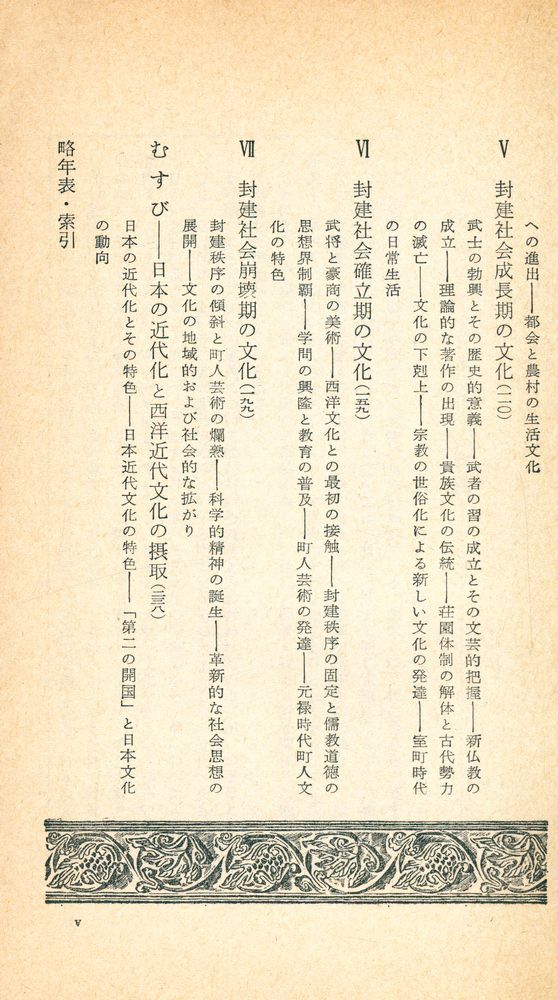 への進出――都会と農村の生活文化
Ⅴ 封建社会成長期の文化(一一〇)
武士の勃興とその歴史的意義――武者の習の成立とその文芸的把握――新仏教の
成立――理論的な著作の出現――貴族文化の伝統――荘園体制の解体と古代勢力
の滅亡――文化の下剋上――宗教の世俗化による新しい文化の発達――室町時代
の日常生活
Ⅵ 封建社会確立期の文化(一五九)
武将と豪商の美術――西洋文化との最初の接触――封建秩序の固定と儒教道徳の
思想界制覇――学問の興隆と教育の普及――町人芸術の発達――元禄時代町人文
化の特色
Ⅶ 封建社会崩壊期の文化(一九九)
封建秩序の傾斜と町人芸術の爛熟――科学的精神の誕生――革新的な社会思想の
展開――文化の地域的および社会的な拡がり
むすび――日本の近代化と西洋近代文化の摂取(二三八)
日本の近代化とその特色――日本近代文化の特色――「第二の開国」と日本文化
の動向
略年表・索引
v